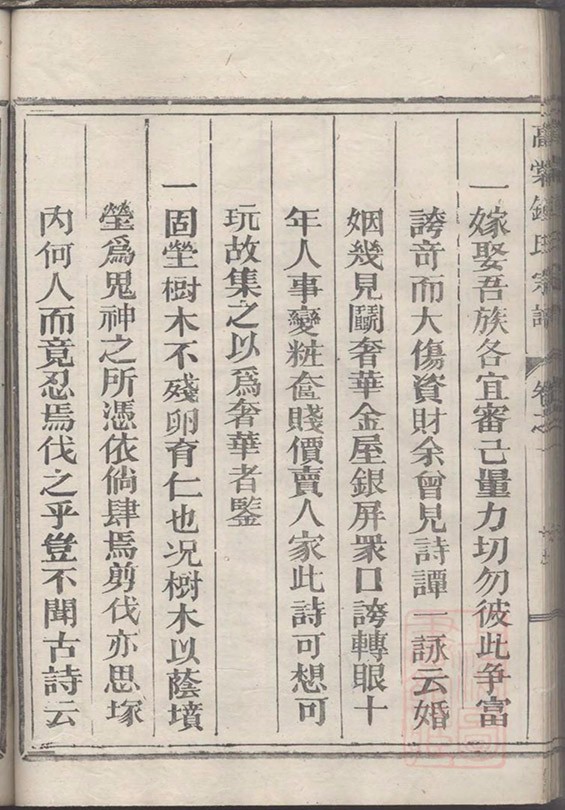 一嫁娶吾族各宜審己量力切勿彼此争富
誇竒而大傷資財余曾見詩譚一詠云婚
姻幾見鬭奢華金屋銀屏眾口誇轉眼十
年人事變粧奩賤價賣人家此詩可想可
玩故集之以爲奢華者鑒
一固塋樹木不殘卵育仁也况樹木以蔭墳
塋爲鬼神之所憑依倘肆焉剪伐亦思塚
内何人而竟忍焉伐之乎豈不聞古詩云
氏宗譜